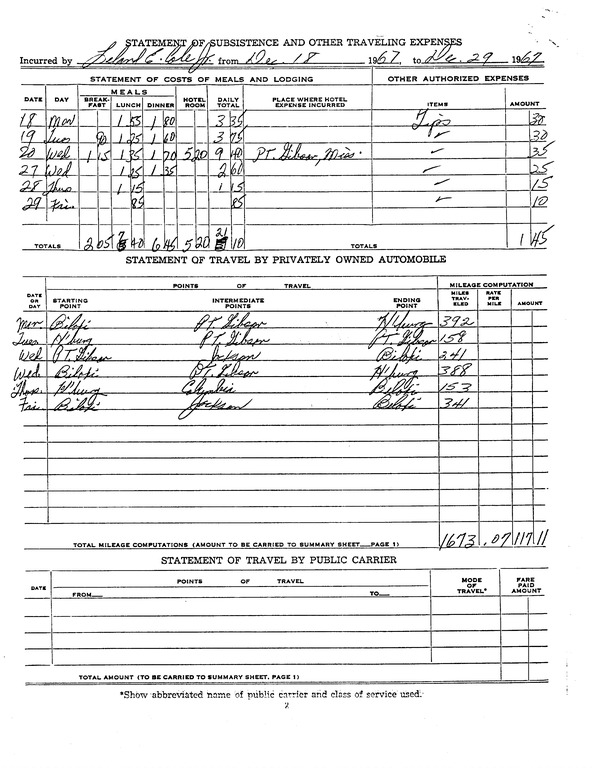 STATEMENT OF SUBSISTENCE AND OTHER TRAVELING EXPENSES
Incurred by Leland E. Cole Jr. from Dec. 18 1967, to Dec 29 1967
STATEMENT OF COSTS OF MEALS AND LODGING OTHER AUTHORIZED EXPENSES
MEALS
DATE DAY BREAK-FAST LUNCH DINNER HOTEL ROOM DAILY TOTAL PLACE WHERE HOTEL EXPENSE INCURRED ITEMS AMOUNT
18 Mon 1 55 1 80 3 35 Tips 30
19 Tues 90 1 25 1 60 3 75 " 30
20 Wed 1 15 1 35 1 70 5 20 9 40 PT. Gibson, Miss. " 35
27 Wed 1 25 1 35 2 60 " 25
28 Thus 1 15 1 15 " 15
29 Fri. 85 85 " 10
TOTALS 2 05 7 40 6 45 5 20 21 10 TOTALS 1 45
STATEMENT OF TRAVEL BY PRIVATELY OWNED AUTOMOBILE
POINTS OF TRAVEL MILEAGE COMPUTATION
DATE OR DAY STARTING POINT INTERMEDIATE POINTS ENDING POINT MILES TRAV-ELED RATE PER MILE AMOUNT
Mon Biloxi PT. Gibson H'burg 392
Tues H'burg PT. Gibson PT. Gibson 158
Wed PT. Gibson Jackson Biloxi 241
Wed. Biloxi PT. Gibson H'burg 388
Thus. H'burg Columbia Biloxi 153
Fri. Biloxi Jackson Biloxi 341
TOTAL MILEAGE COMPUTATIONS (AMOUNT TO BE CARRIED TO SUMMARY SHEET—PAGE 1) 1673 .07 117 11
STATEMENT OF TRAVEL BY PUBLIC CARRIER
DATE POINTS OF TRAVEL MODE OF TRAVEL* FARE PAID AMOUNT
FROM— TO—
TOTAL AMOUNT (TO BE CARRIED TO SUMMARY SHEET, PAGE 1)
*Show abbreviated name of public carrier and class of service used.
2